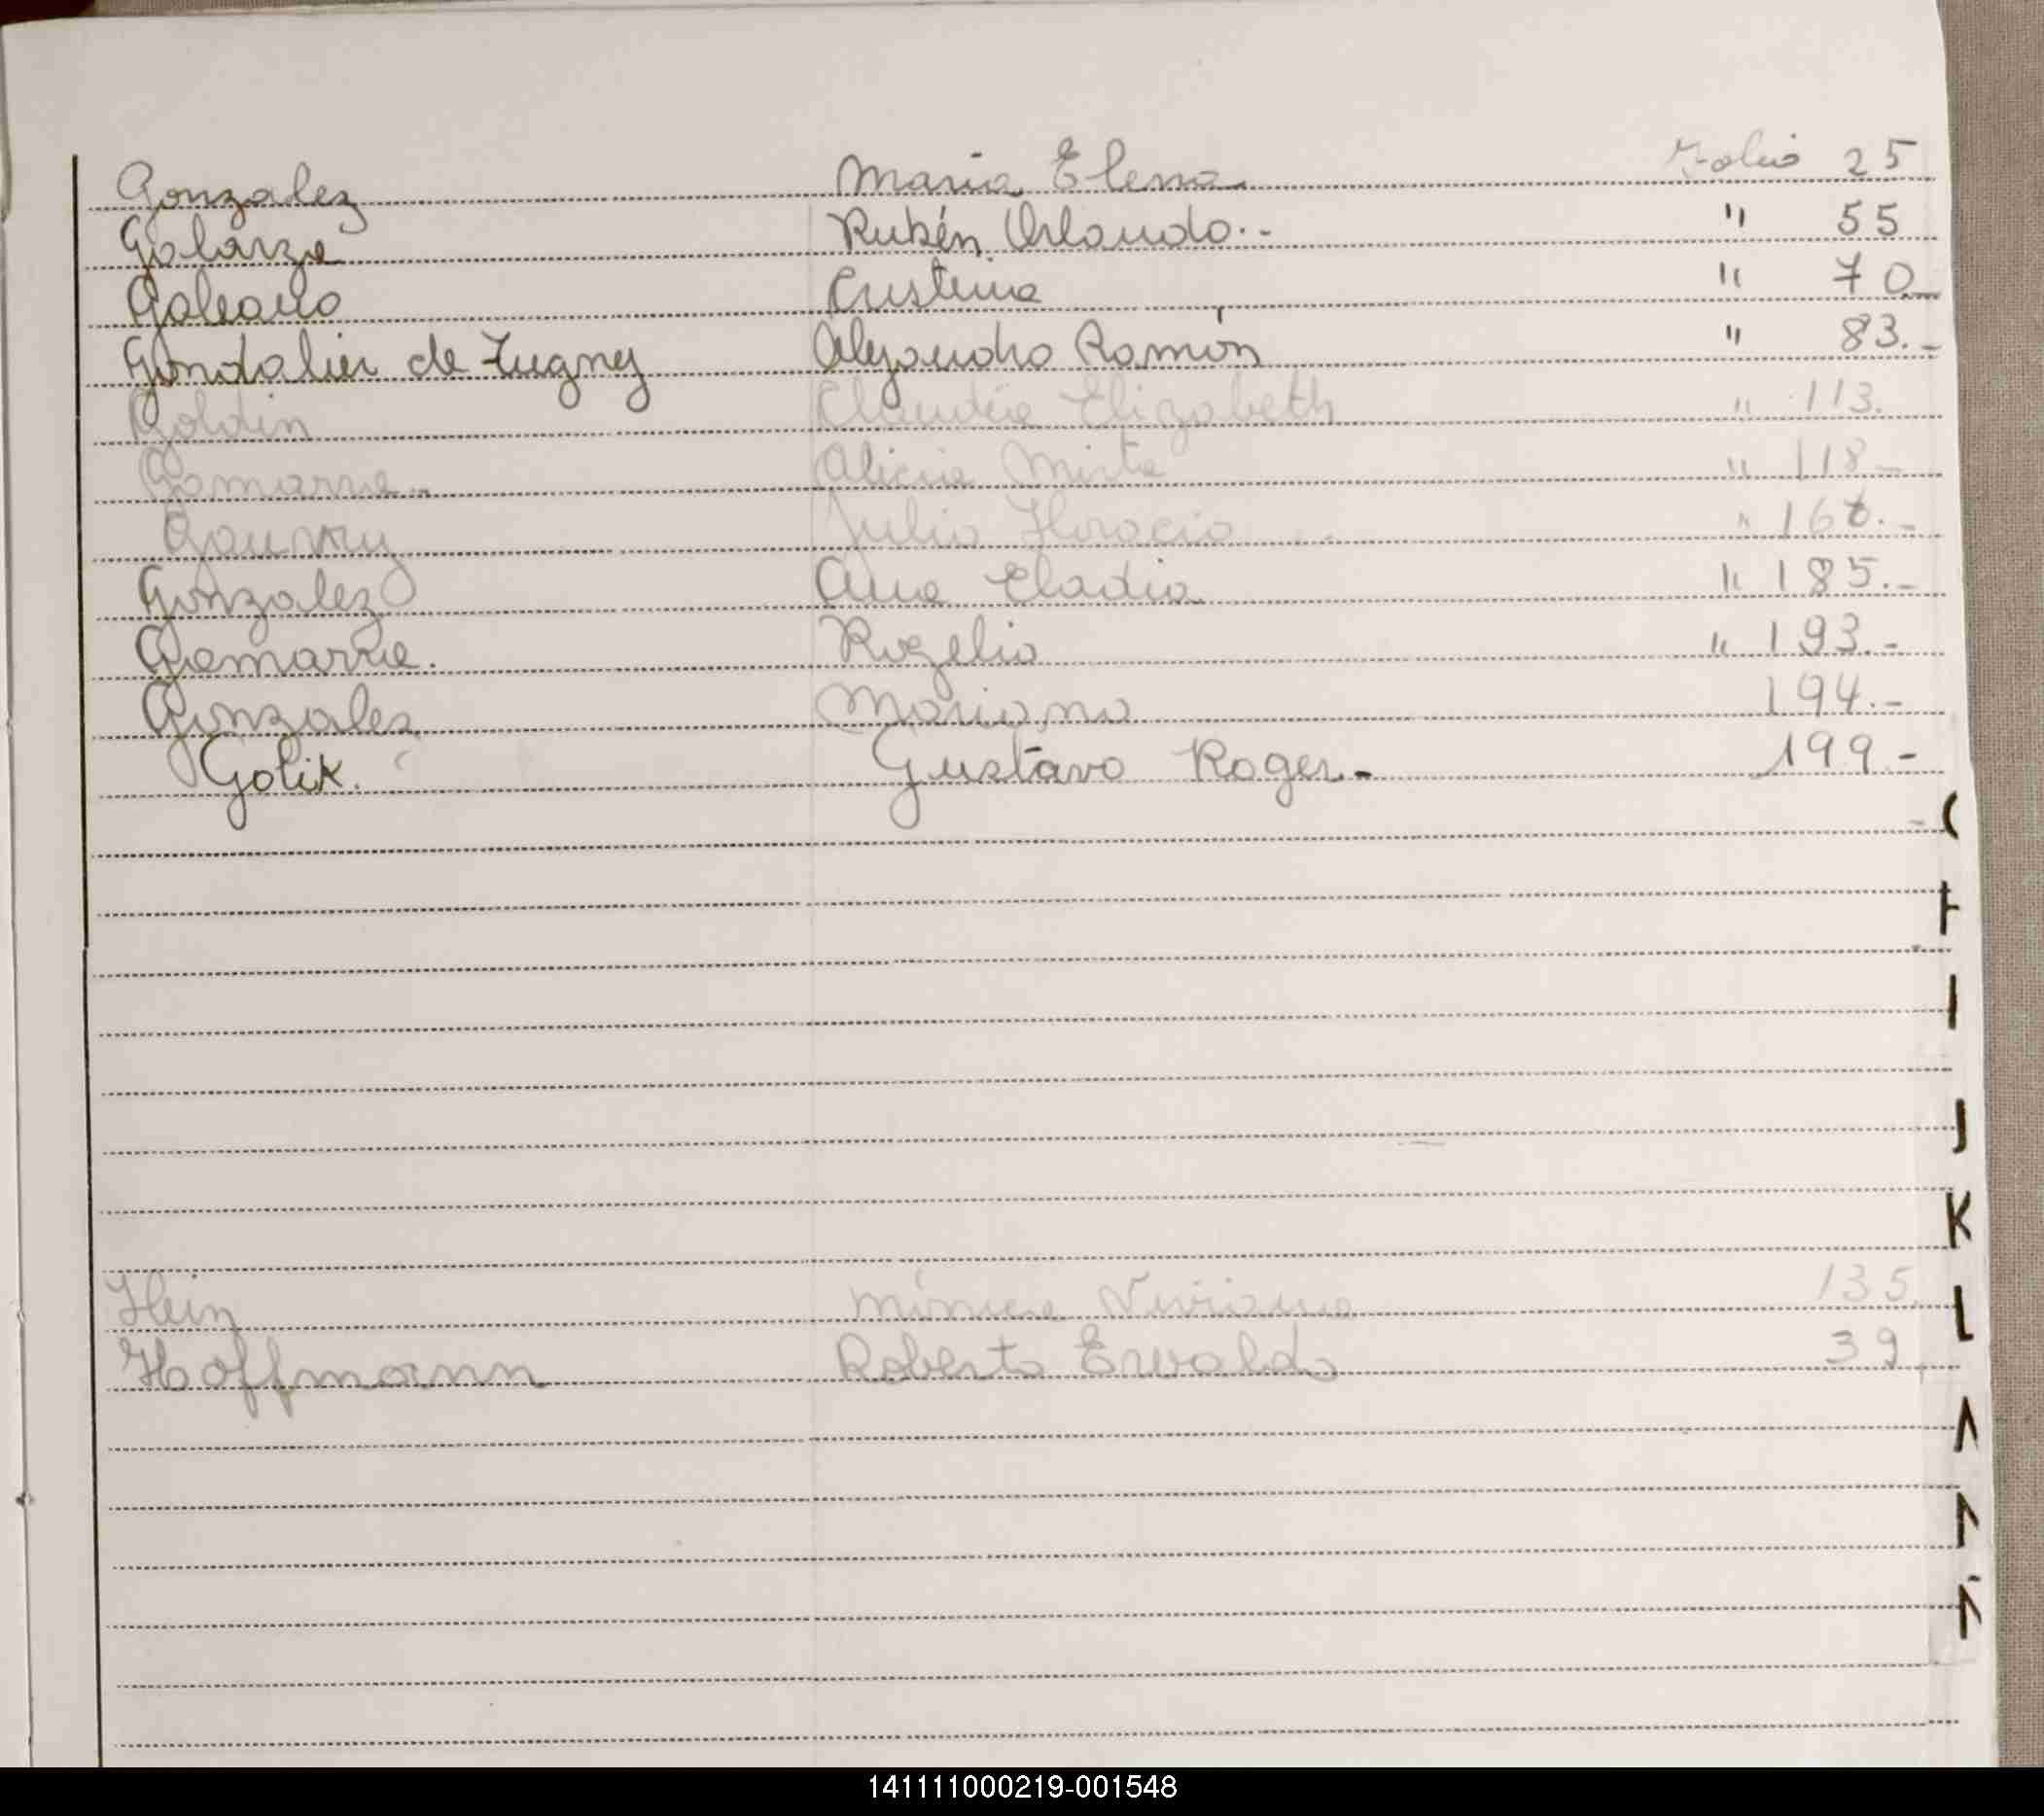 Gonzalez Maria Elena Folio 25
Galarza Rubén Orlando.- " 55
Galeano Cristina " 70.-
Gondalier de Tugny Alejandro Ramón " 83.-
Goldin Claudia Elizabeth " 113.
Gamarra.- Alicia Mirta " 118.-
Julio Horacio " 166.-
Gonzalez Ana Eladia " 185.-
Gamarra. Rogelio " 193.-
Gonzalez Mariano 194.-
Golik. Gustavo Roger.- 199.-
I
J
K
Hein Mónica Viviana 135.
L
Hoffmann Roberto Erwaldo 39
141111000219-001548